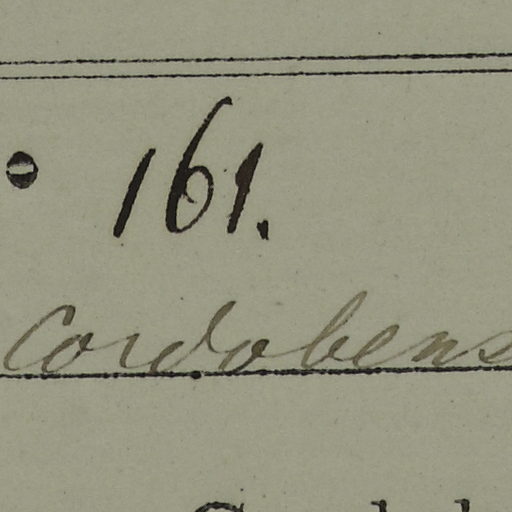 161.
Cordobens